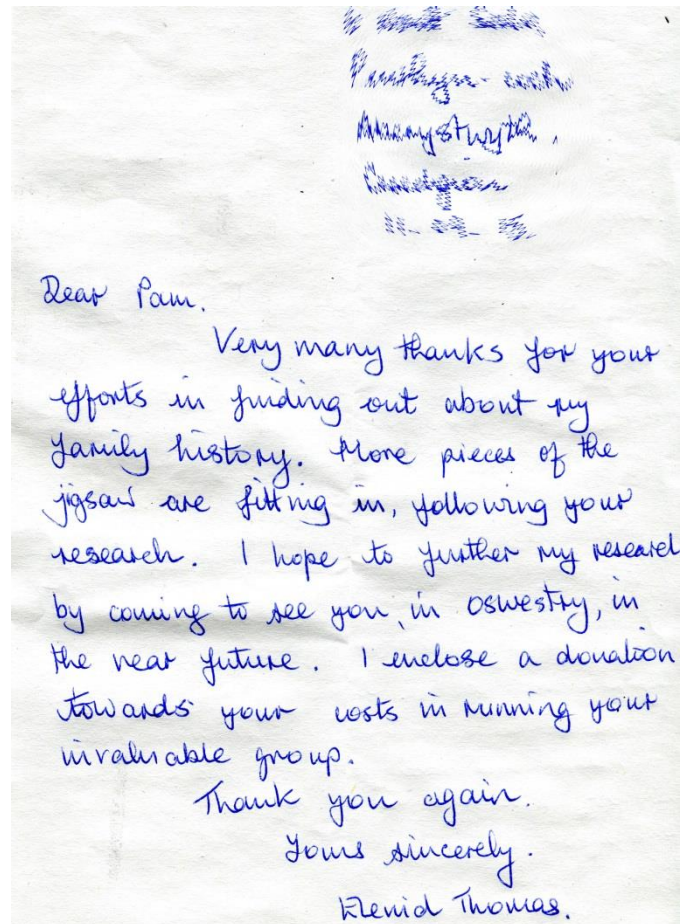 Dear Pam.
Very many thanks for your
efforts in finding out about my
family history. More pieces of the
jigsaw are fitting in, following your
research. I hope to further my research
by coming to see you, in Oswestry, in
the near future. I enclose a donation
towards your costs in running your
invaluable group.
Thank you again.
Yours sincerely.
Elenid Thomas.